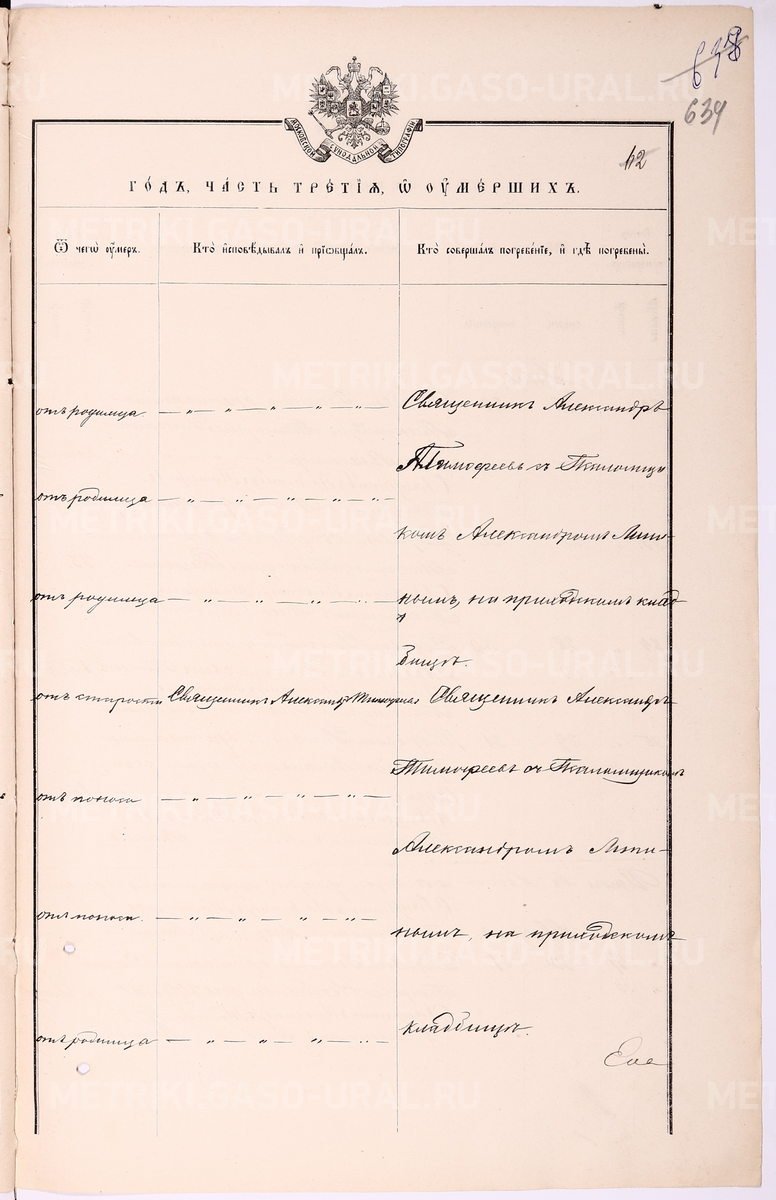 638
639
МОСКОВСКОЙ СѴНОДАЛЬНОЙ ТИПОГРАФІИ
62
ГО́ДЪ, ЧА́СТЬ ТРЕ́ТІѦ, Ѽ ОУ҆МЕ́РШИХЪ.
Ѿ чегѡ̀ ᲂу҆́меръ.
Кто̀ и҆сповѣ́дывалъ и҆ прїѡбща́лъ.
Кто̀ соверша́лъ погребе́нїе, и҆ гдѣ̀ погребены̀.
отъ родимца — „ — „ — „ — „ — „ — Священникъ Александръ
Тимофеевъ съ Псаломщи
отъ родимца — „ — „ — „ — „ — „ —
комъ Александромъ Мини-
отъ родимца — „ — „ — „ — „ — нымъ, на приходскомъ клад
бищѣ.
отъ старости Священникъ Александръ Тимофеевъ Священникъ Александръ
Тимофеевъ съ Псаломщикомъ
отъ поноса — „ — „ — „ — „ — „ —
Александромъ Мини-
отъ поноса — „ — „ — „ — „ —
нымъ, на приходскомъ
кладбищѣ.
отъ родимца — „ — „ — „ — „ —
METRIKI.GASO-URAL.RU